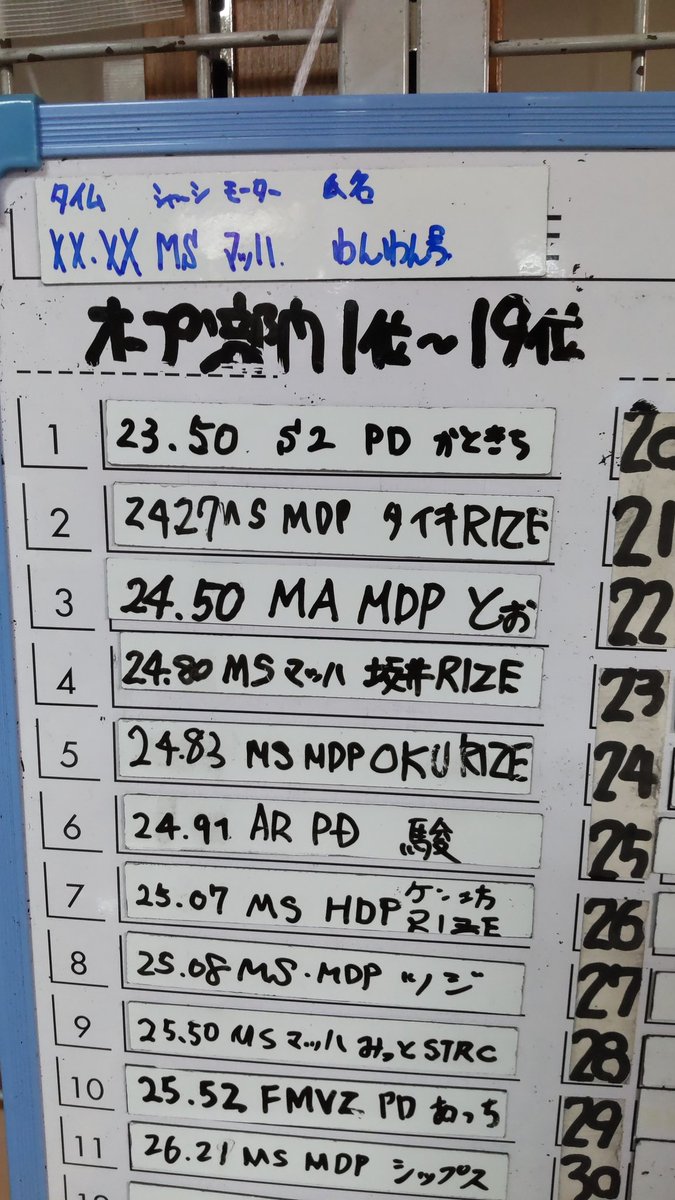 タイム シャーシ モーター 氏名
XX.XX MS マッハ. わんわん号
オープン部内 1位〜19位
1 23.50 S2 PD かときち
2 2427 MS MDP タイキRIZE
3 24.50 MA MDP とお
4 24.80 MS マッハ 坂井RIZE
5 24.83 MS MDP OKU RIZE
6 24.91 AR PD 駿
7 25.07 MS HDP ケン坊 RIZE
8 25.08 MS・MDP ツジ
9 25.50 MS マッハ みっとSTRC
10 25.52 FMVZ PD あっち
11 26.21 MS MDP シップス
20
21
22
23
24
25
26
27
28
29
30